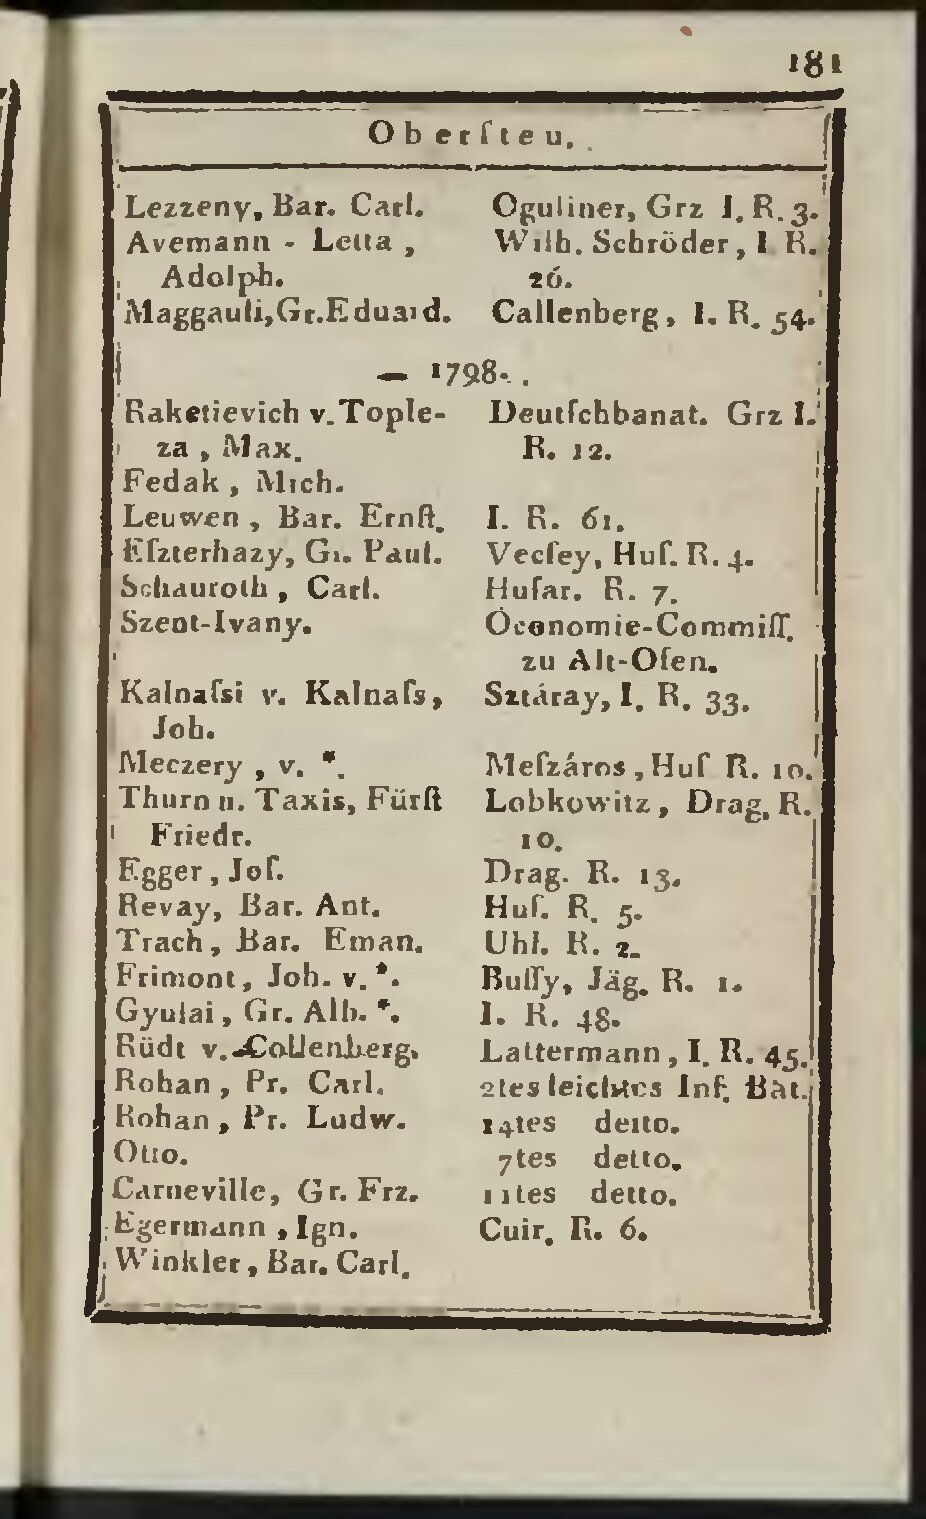 181
Oberſten.
Lezzeny, Bar. Carl. Oguliner, Grz I. R. 3.
Avemann - Letta, Wilh. Schröder, I R.
Adolph. 26.
Maggauli, Gr. Eduard. Callenberg, I. R. 54.
— 1798. .
Raketievich v. Tople- Deutſchbanat. Grz I.
za, Max. R. 12.
Fedak, Mich.
Leuwen, Bar. Ernſt. I. R. 61.
Eſzterhazy, Gr. Paul. Vecſey, Huſ. R. 4.
Schauroth, Carl. Huſar. R. 7.
Szent-Ivany. Öconomie-Commiſſ.
zu Alt-Ofen.
Kalnaſsi v. Kalnaſs, Sztáray, I. R. 33.
Joh.
Meczery, v. *. Meſzáros, Huſ R. 10.
Thurn u. Taxis, Fürſt Lobkowitz, Drag. R.
Friedr. 10.
Egger, Joſ. Drag. R. 13.
Revay, Bar. Ant. Huſ. R. 5.
Trach, Bar. Eman. Uhl. R. 2.
Frimont, Joh. v. *. Buſſy, Jäg. R. 1.
Gyulai, Gr. Alb. *. I. R. 48.
Rüdt v. Collenberg. Lattermann, I. R. 45.
Rohan, Pr. Carl. 2tes leichtes Inf. Bat.
Rohan, Pr. Ludw. 14tes detto.
Otto. 7tes detto.
Carneville, Gr. Frz. 11tes detto.
Egermann, Ign. Cuir. R. 6.
Winkler, Bar. Carl.